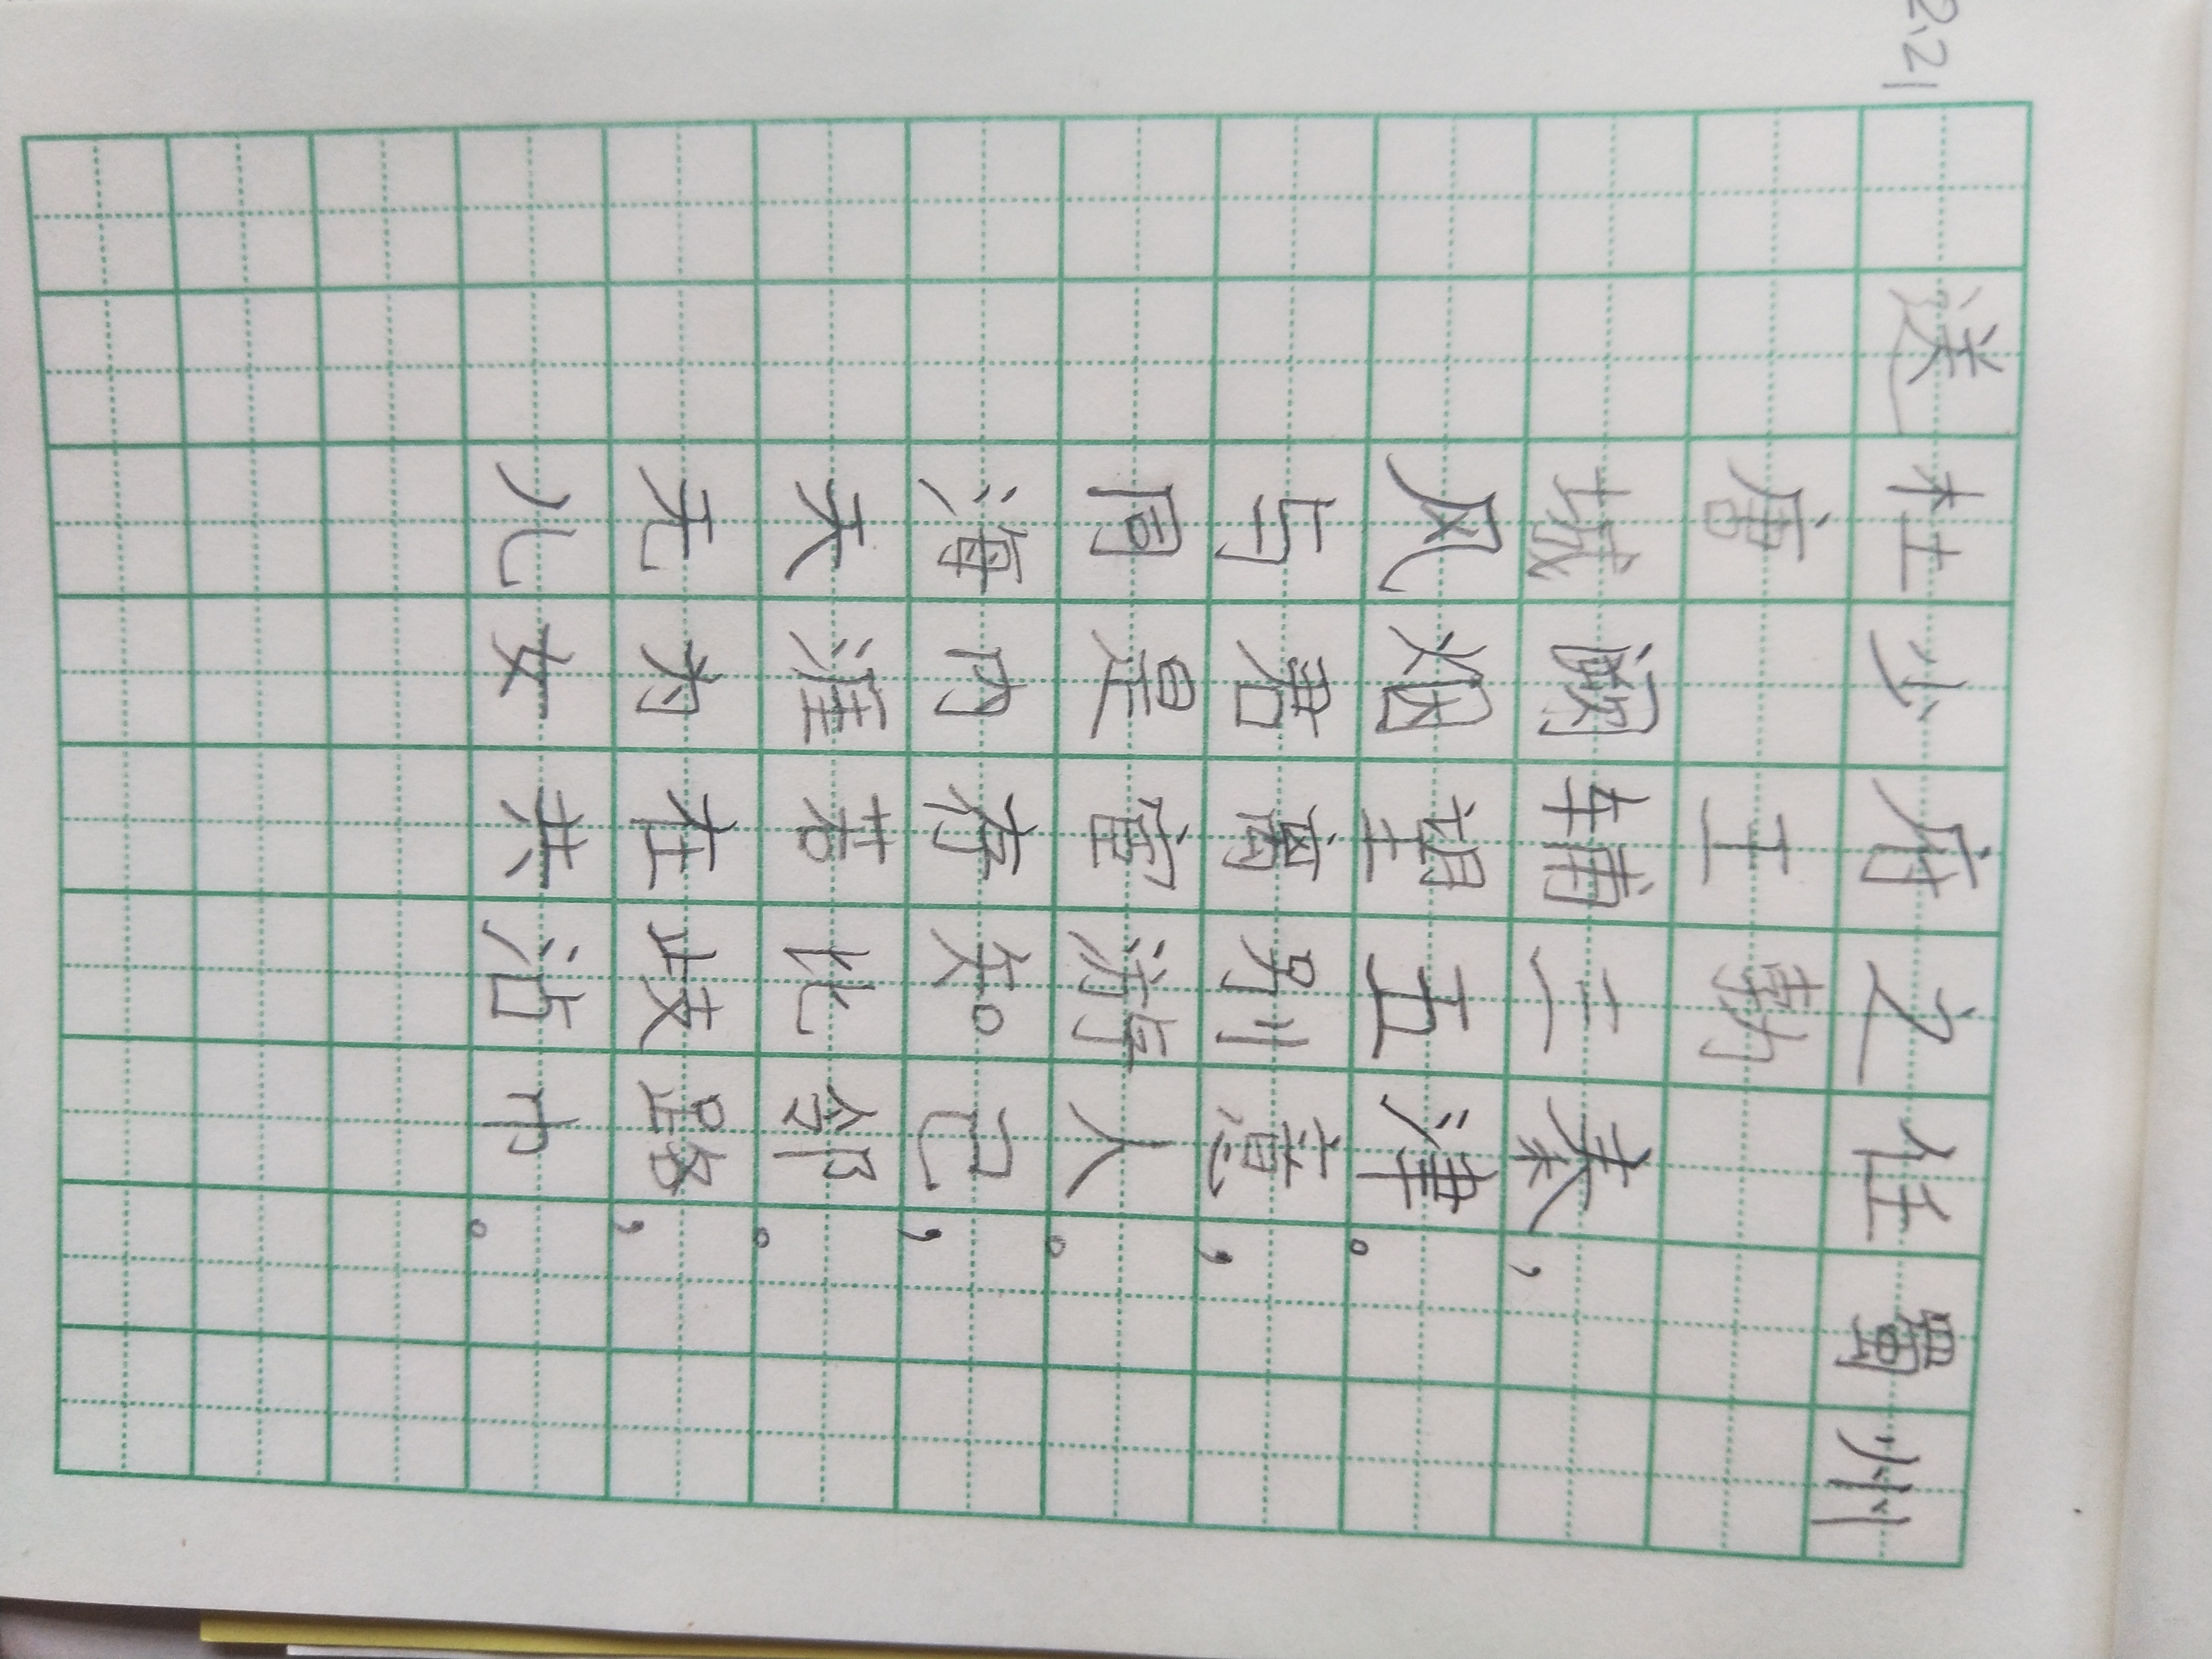 2.21
送杜少府之任蜀州
唐 王勃
城阙辅三秦，
风烟望五津。
与君离别意，
同是宦游人。
海内存知己，
天涯若比邻。
无为在歧路，
儿女共沾巾。